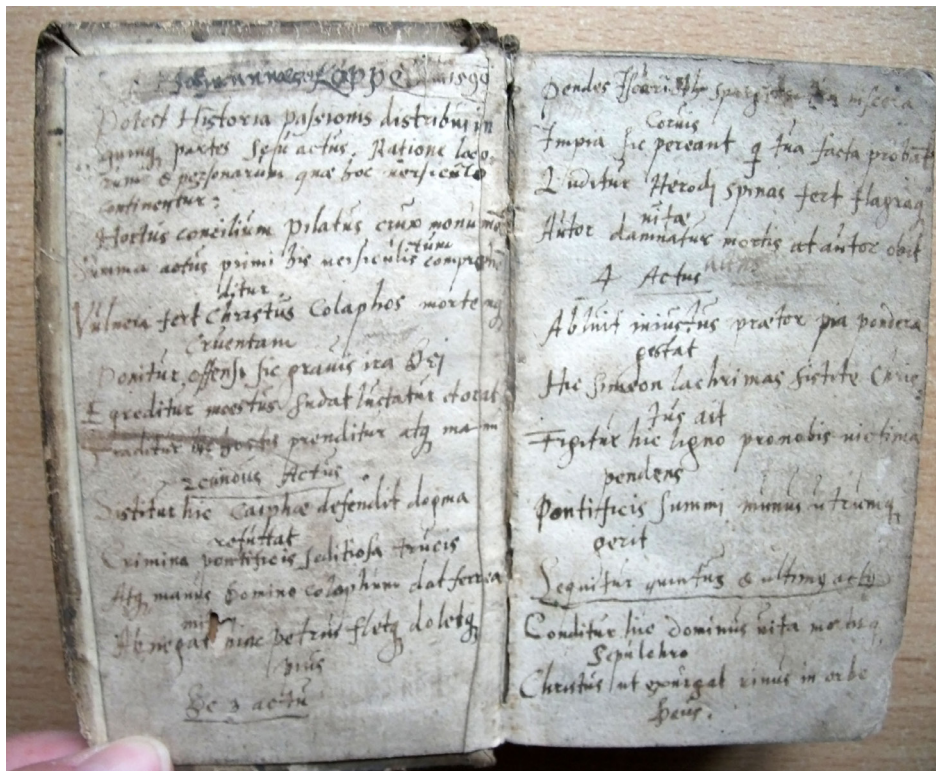 Johannes Koppe 1599
Potest Historia passionis distribui in
quinq partes seu actus. Ratione loco
rum & personarum quæ hoc versiculo
continentur:
Hortus concilium Pilatus crux monumē
tum
Summa actus primi his versiculis comprehē
ditur
Vulnera fert Christus Colaphos mortemq
Cruentam
Ponitur offensi sic gravis ira Dei
Egreditur moestus. sudat luctatur et orat
Traditur hostis prenditur atq manu
2cundus Actus
Sistitur hic Caiphæ defendit dogma
refuttat
Crimina pontificis seditiosa trucis
Atq manus Domino colaphum dat ferrea
Abnegat hinc petrus fletq doletq
pius
De 3 actu
Pendes Iscariothe viscera
Corvis
Impia sic pereant q tua facta probāt
Luditur Herodi spinas fert flagraq
vitæ
Autor damnatus mortis at autor obit
4 Actus
Abluit iniustus prætor pondera
gestat
Hic Simeon lachrimas sistite Chris
tus ait
Figitur hic ligno pronobis victima
pendens
Pontificis summi munus utrumq
gerit
Sequitur quintus & ultimq actq
Conditur hic dominus vita
Sepulchro
Christus ut exurgat in orbe